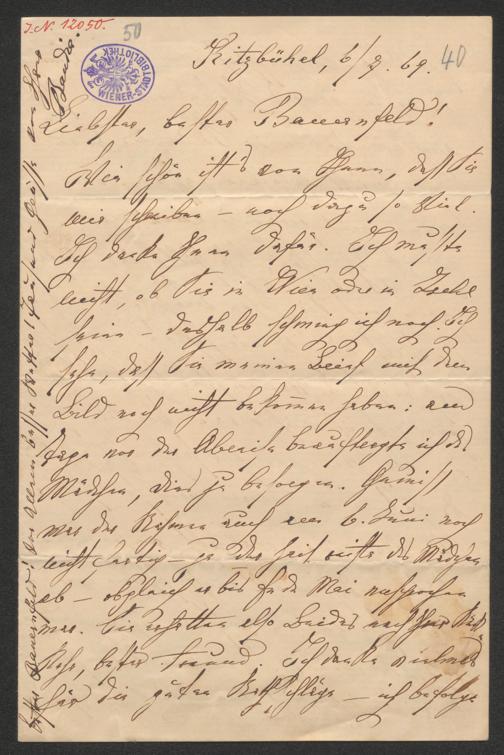 I.N. 12050.
50
40
WIENER-STADTBIBLIOTHEK
Kitzbühel, 6/7. 69.
Liebster, bester Bauernfeld!
Wie schön ist's von Ihnen, daß Sie
mir schreiben – noch dazu so viel.
Ich danke Ihnen dafür. Ich wußte
nicht, ob Sie in Wien oder in Ischl
seien – deßhalb schwieg ich noch. Ich
sehe, daß Sie meinen Brief mit dem
Bild noch nicht bekommen haben: am
Tage vor der Abreise beauftragte ich das
Mädchen, dies zu besorgen. Gewiß
war der Rahmen auch am 6. Juni noch
nicht fertig – zu der Zeit reiste das Mädchen
ab – obgleich er bis Ende Mai versprochen
war. Sie erhalten also Beides nach Ihrer
bester Freund. Ich danke vielmals
für die guten Rathschläge – ich befolge
bester Bauernfeld! vor Allem besser Wetter!